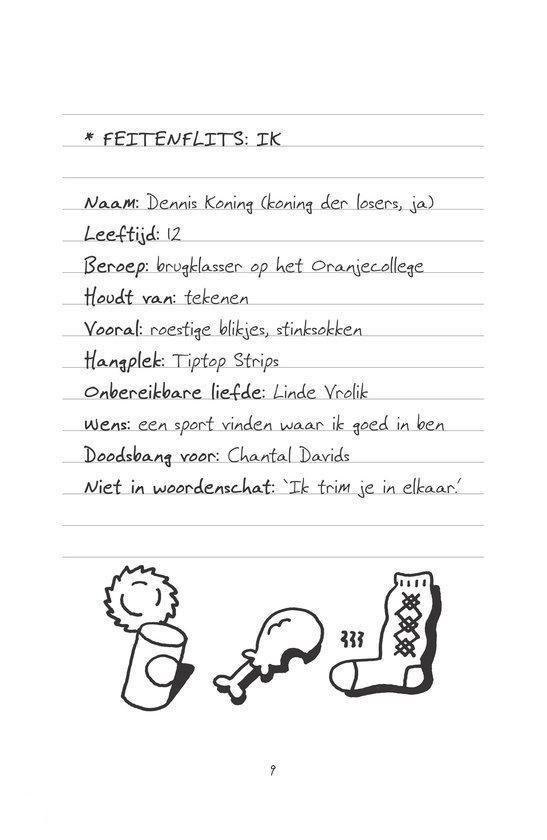 * FEITENFLITS: IK
Naam: Dennis Koning (koning der losers, ja)
Leeftijd: 12
Beroep: brugklasser op het Oranjecollege
Houdt van: tekenen
Vooral: roestige blikjes, stinksokken
Hangplek: Tiptop Strips
Onbereikbare liefde: Linde Vrolik
Wens: een sport vinden waar ik goed in ben
Doodsbang voor: Chantal Davids
Niet in woordenschat: ‘Ik trim je in elkaar.’
9